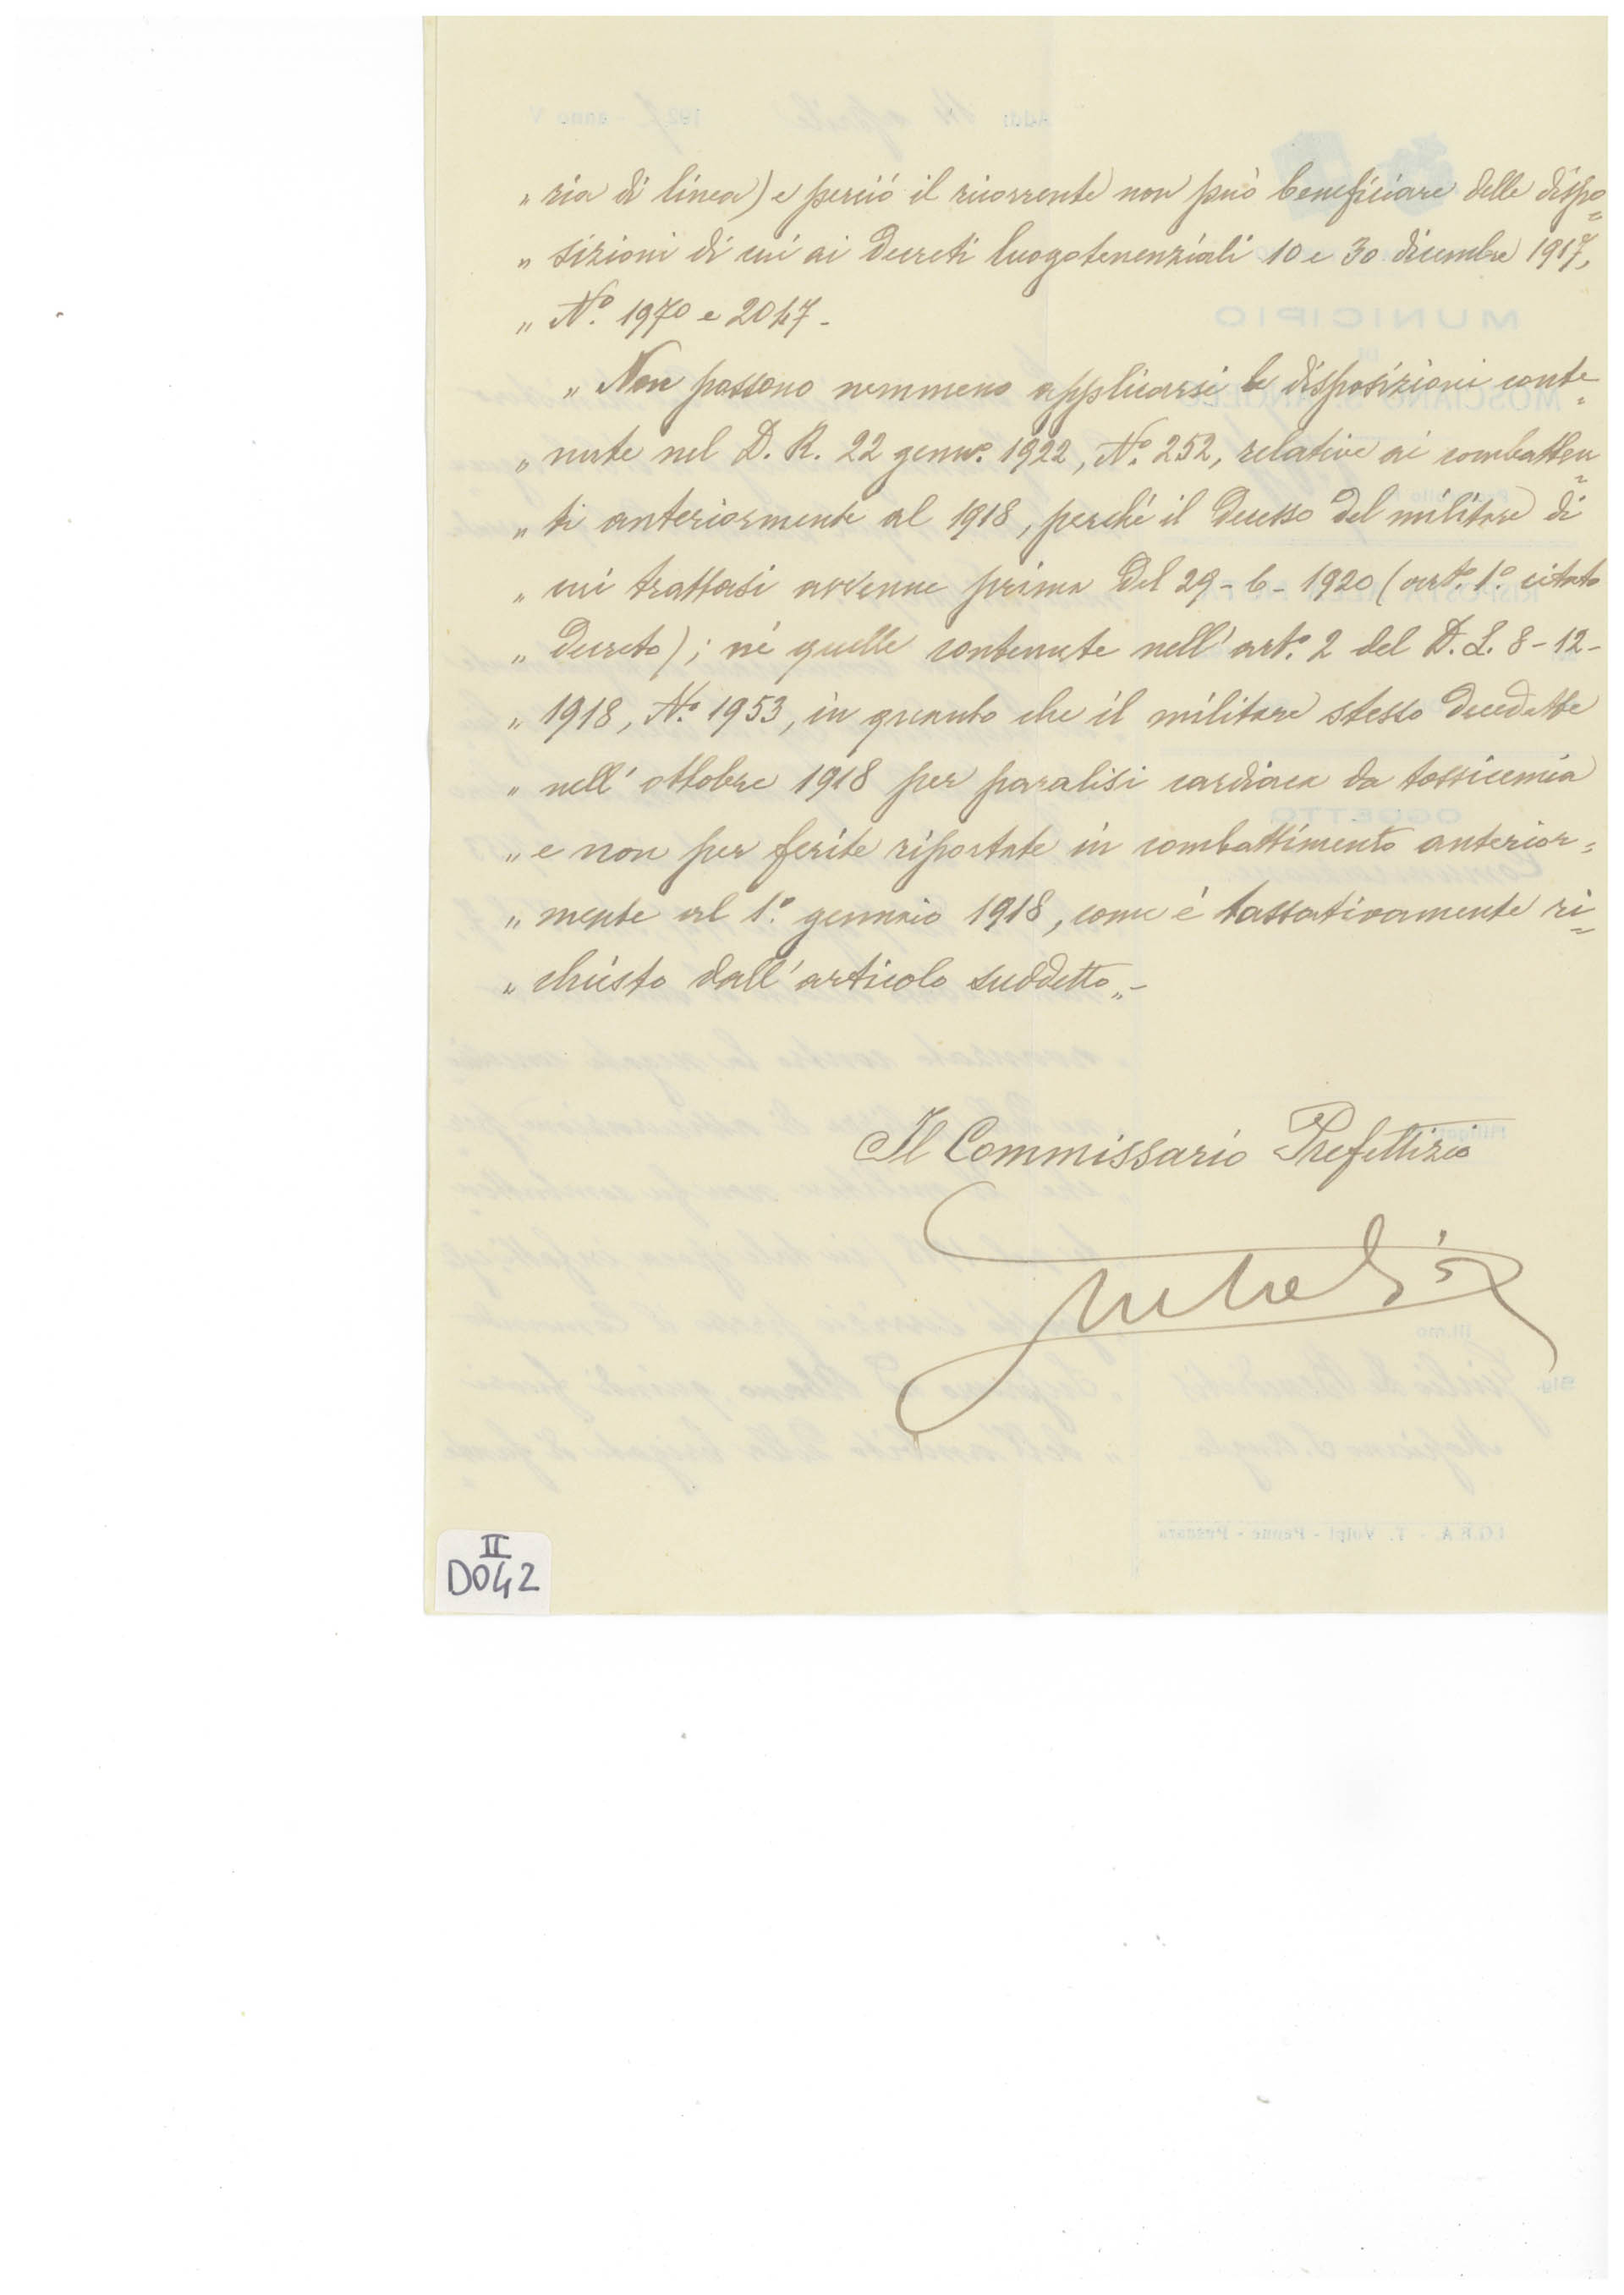 „ ria di linea) e perciò il ricorrente non può beneficiare delle dispo=
„ sizioni di cui ai Decreti luogotenenziali 10 e 30 dicembre 1917,
„ Nº. 1970 e 2047 -
„ Non possono nemmeno applicarsi le disposizioni conte=
„ nute nel D. R. 22 gennº. 1922, Nº. 252, relative ai combatten=
„ ti anteriormente al 1918, perché il Decesso del militare di
„ cui trattasi avvenne prima del 29-6-1920 (artº. 1º. citato
„ Decreto); né quelle contenute nell' artº. 2 del D. L. 8-12-
„ 1918, Nº. 1953, in quanto che il militare stesso decedette
„ nell' ottobre 1918 per paralisi cardiaca da tossicemia
„ e non per ferite riportate in combattimento anterior=
„ mente al 1º. gennaio 1918, come è tassativamente ri=
„ chiesto dall' articolo suddetto „-
Il Commissario Prefettizio
II
D042